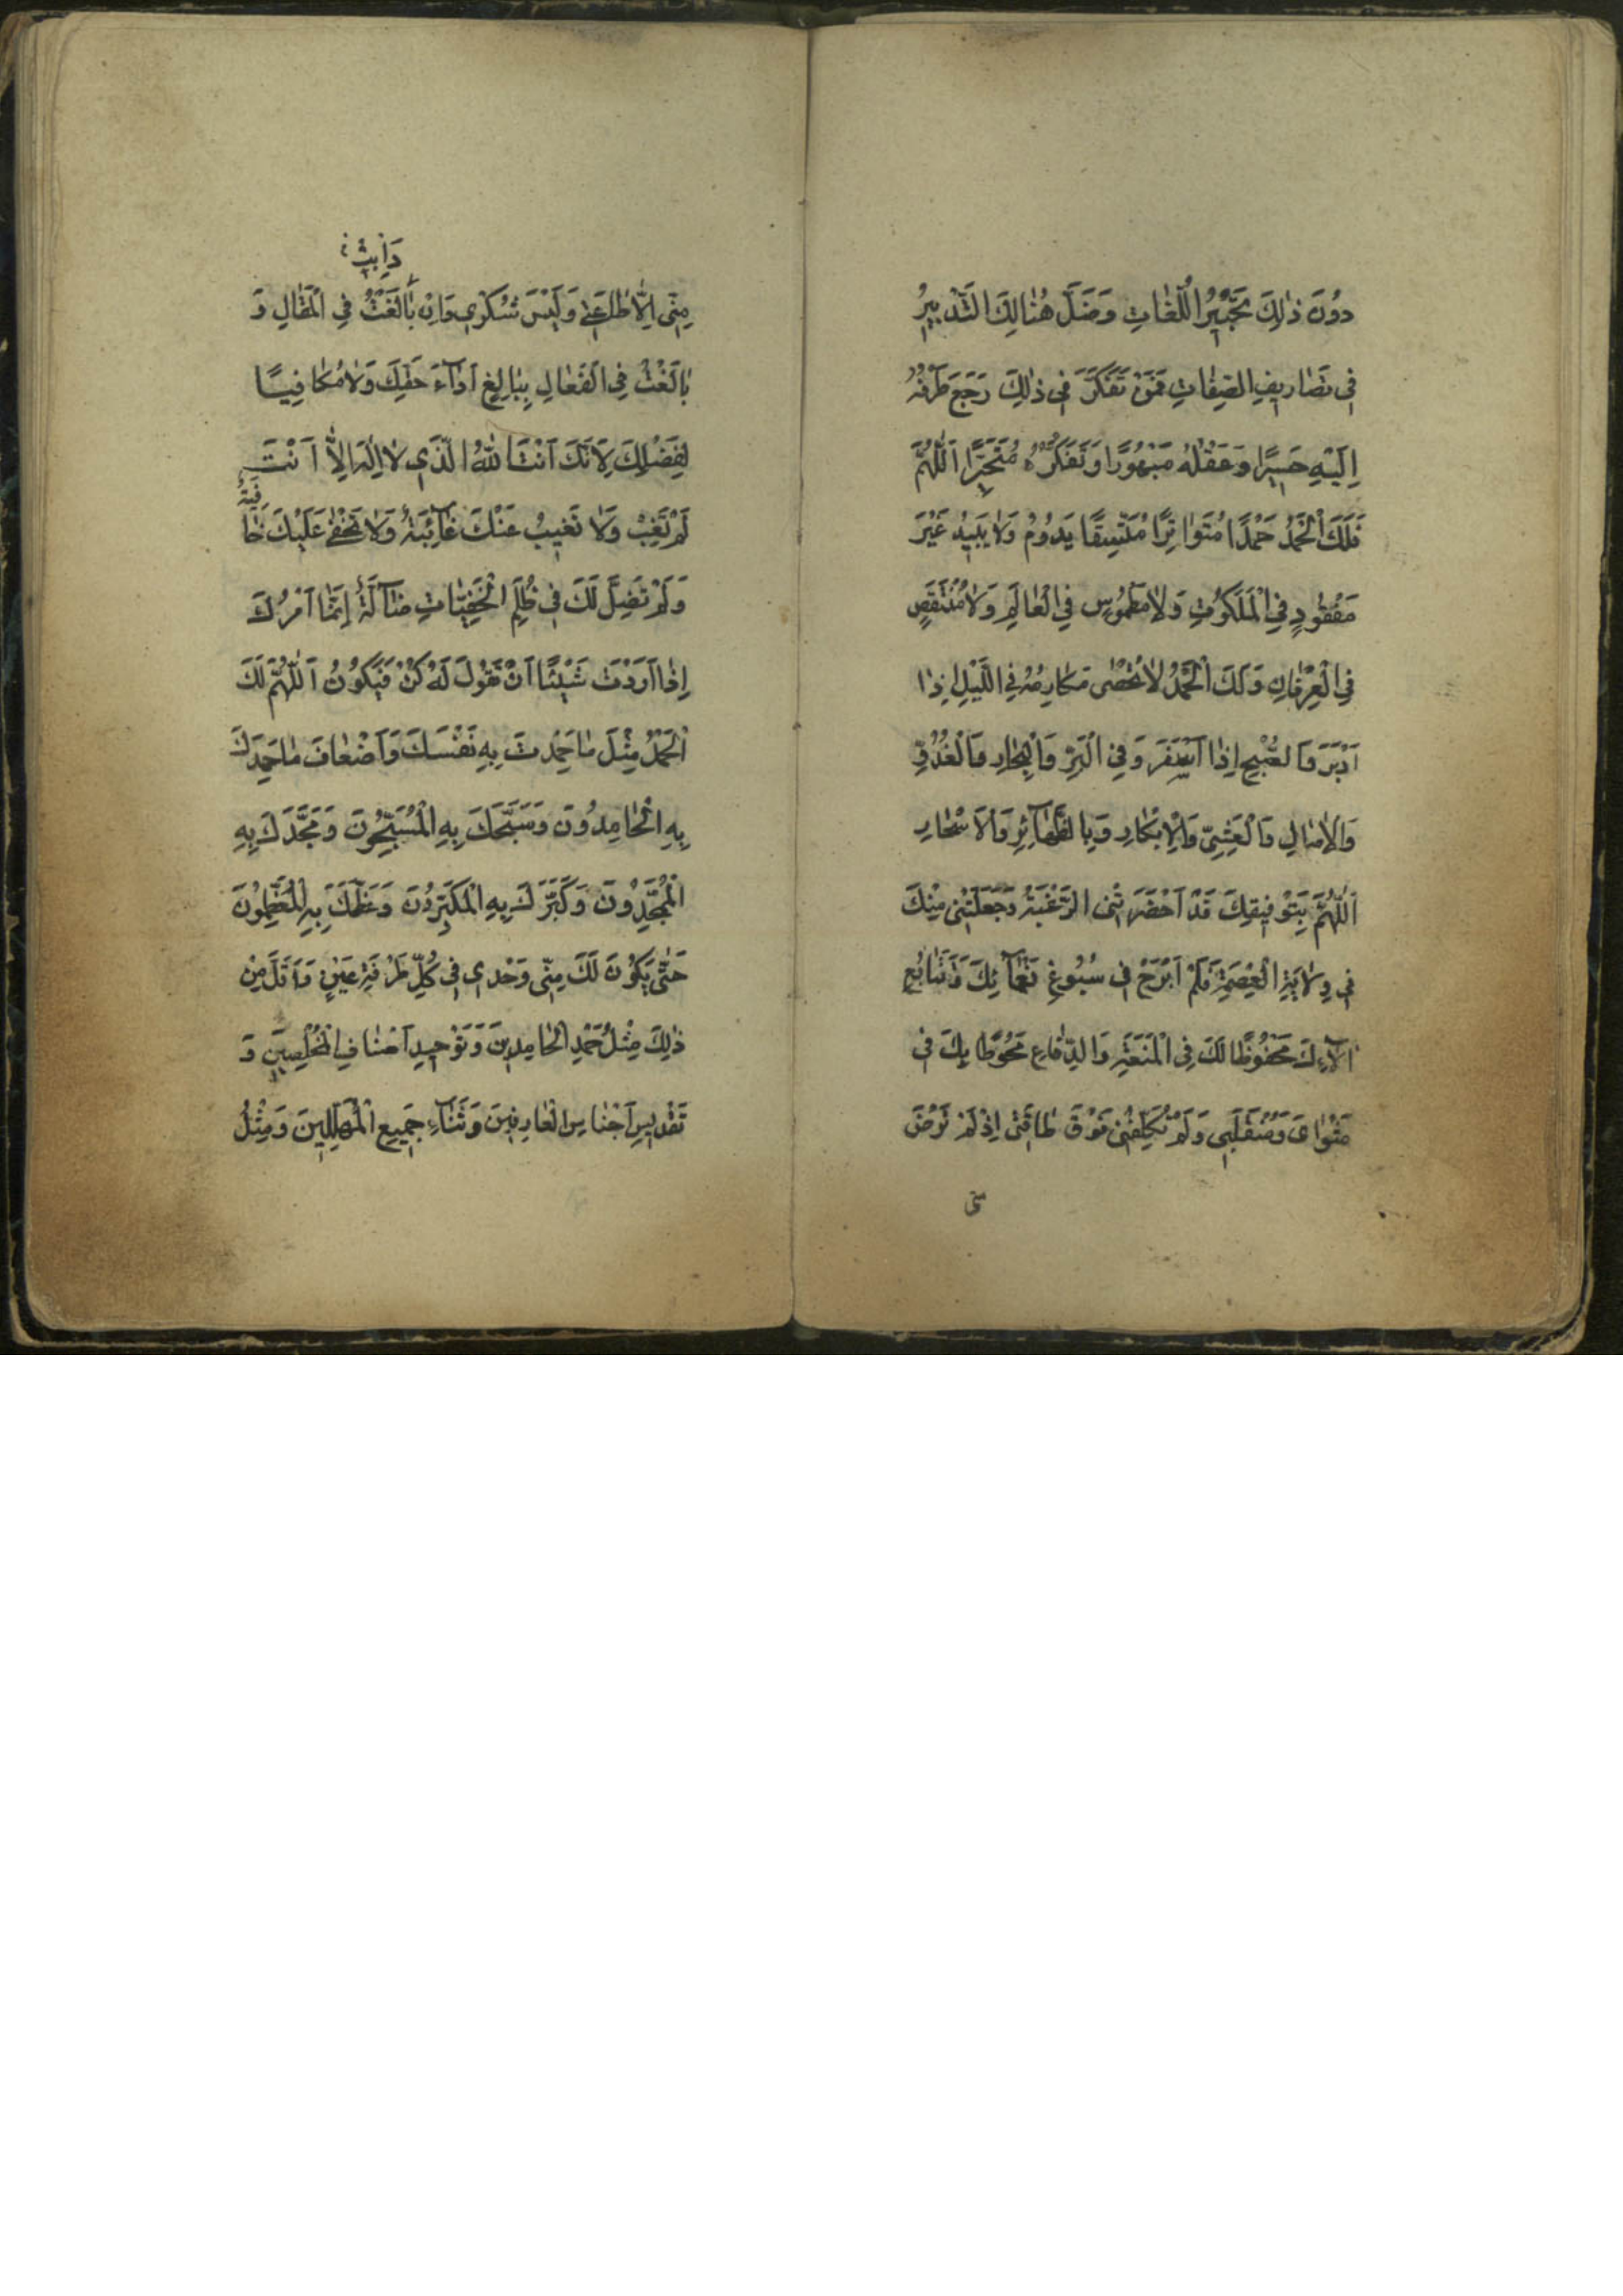 دُونَ ذٰلِكَ تَحْبِيرُ اللُّغٰاتِ وَضَلَّ هُنٰالِكَ التَّدْبِيرُ
فِي تَصٰارِيفِ الصِّفٰاتِ فَمَنْ تَفَكَّرَ فِي ذٰلِكَ رَجَعَ طَرْفُهُ
اِلَيْهِ حَسِيرًا وَعَقْلُهُ مَبْهُورًا وَتَفَكُّرُهُ مُتَحَيِّرًا اَللّٰهُمَّ
فَلَكَ الْحَمْدُ حَمْدًا مُتَوٰاتِرًا مُتَّسِقًا يَدُومُ وَلاٰ يَبِيدُ غَيْرَ
مَفْقُودٍ فِي الْمَلَكُوتِ وَلاٰ مَطْمُوسٍ فِي الْعٰالَمِ وَلاٰ مُنْتَقَصٍ
فِي الْعِرْفٰانِ وَلَكَ الْحَمْدُ لاٰ تُحْصٰى مَكٰارِمُهُ فِي اللَّيْلِ اِذٰا
اَدْبَرَ وَالصُّبْحِ اِذٰا اَسْفَرَ وَفِي الْبَرِّ وَالْبِحٰارِ وَالْغُدُوِّ
وَالْاٰصٰالِ وَالْعَشِيِّ وَالْاِبْكٰارِ وَبِالظَّهٰآئِرِ وَالْاَسْحٰارِ
اَللّٰهُمَّ بِتَوْفِيقِكَ قَدْ اَحْضَرْتَنِي الرَّغْبَةَ وَجَعَلْتَنِي مِنْكَ
فِي وِلاٰيَةِ الْعِصْمَةِ فَلَمْ اَبْرَحْ فِي سُبُوغِ نَعْمٰآئِكَ وَتَتٰابُعِ
اٰلآءِكَ مَحْفُوظًا لَكَ فِي الْمَنَعَةِ وَالدِّفٰاعِ مَحُوطًا بِكَ فِي
مَثْوٰايَ وَمُنْقَلَبِي وَلَمْ تُكَلِّفْنِي فَوْقَ طٰاقَتِي اِذْ لَمْ تَرْضَ
منّي
وَاَبْيَتُ
مِنِّي اِلاّٰ طٰاعَتِي وَلَيْسَ شُكْرِي وَاِنْ بٰالَغْتُ فِي الْمَقٰالِ وَ
بٰالَغْتُ فِي الْفَعٰالِ بِبٰالِغِ اَدٰآءَ حَقِّكَ وَلاٰ مُكٰافِيًا
لِفَضْلِكَ لِاَنَّكَ اَنْتَ اللّٰهُ الَّذِي لاٰ اِلٰهَ اِلاّٰ اَنْتَ
لَمْ تَغِبْ وَلاٰ تَغِيبُ عَنْكَ غٰآئِبَةٌ وَلاٰ تَخْفٰى عَلَيْكَ خٰافِيَةٌ
وَلَمْ تَضِلَّ لَكَ فِي ظُلَمِ الْخَفِيّٰاتِ ضٰآلَّةٌ اِنَّمٰا اَمْرُكَ
اِذٰا اَرَدْتَ شَيْئًا اَنْ تَقُولَ لَهُ كُنْ فَيَكُونُ اَللّٰهُمَّ لَكَ
الْحَمْدُ مِثْلَ مٰا حَمِدْتَ بِهِ نَفْسَكَ وَاَضْعٰافَ مٰا حَمِدَكَ
بِهِ الْحٰامِدُونَ وَسَبَّحَكَ بِهِ الْمُسَبِّحُونَ وَمَجَّدَكَ بِهِ
الْمُمَجِّدُونَ وَكَبَّرَكَ بِهِ الْمُكَبِّرُونَ وَعَظَّمَكَ بِهِ الْمُعَظِّمُونَ
حَتّٰى يَكُونَ لَكَ مِنِّي وَحْدِي فِي كُلِّ طَرْفَةِ عَيْنٍ وَاَقَلَّ مِنْ
ذٰلِكَ مِثْلُ حَمْدِ الْحٰامِدِينَ وَتَوْحِيدِ اَصْنٰافِ الْمُخْلِصِينَ وَ
تَقْدِيسِ اَجْنٰاسِ الْعٰارِفِينَ وَثَنٰآءِ جَمِيعِ الْمُهَلِّلِينَ وَمِثْلُ